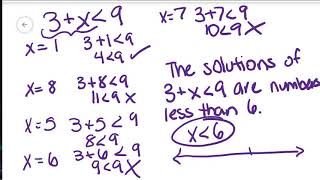 3+x<9
x=1 3+1<9
4<9 ✓
x=8 3+8<9
11<9 X
x=5 3+5<9
8<9
x=6 3+6<9
9<9 X
x=7 3+7<9
10<9 X
The solutions of
3+x<9 are numbers
less than 6.
x<6